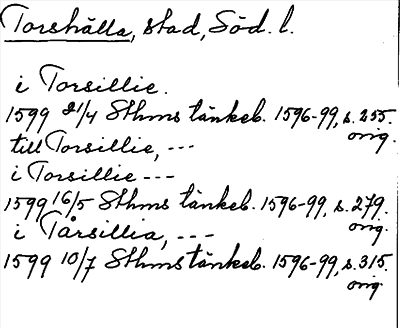 Torshälla, stad, Söd. l.
i Torsillie.
1599 21/4 Sthms tänkeb. 1596-99, s. 255.
orig.
till Torsillie, ---
i Torsillie ---
1599 16/5 Sthms tänkeb. 1596-99, s. 279.
orig.
i Tårsillia, ---
1599 10/7 Sthms tänkeb. 1596-99, s. 315.
orig.